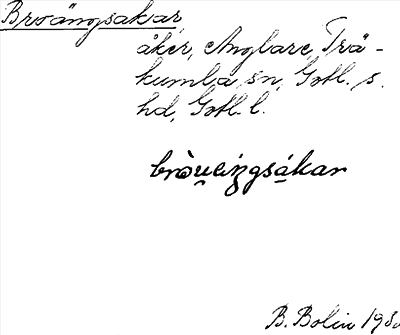 Broängsakar
åker, Anglarve, Trä-
kumla sn, Gotl. s.
hd, Gotl. l.
bròu̯ei̯ŋgsákar
B. Bolin